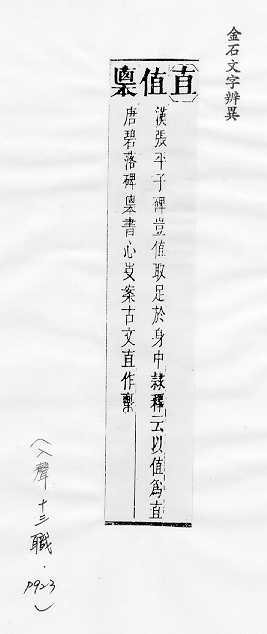 金石文字辨異
直值稟
漢張平子碑豈值取足於身中隸釋云以值為直
唐碧落碑稟書心叓案古文直作稟
(入聲 十三職 . P923)